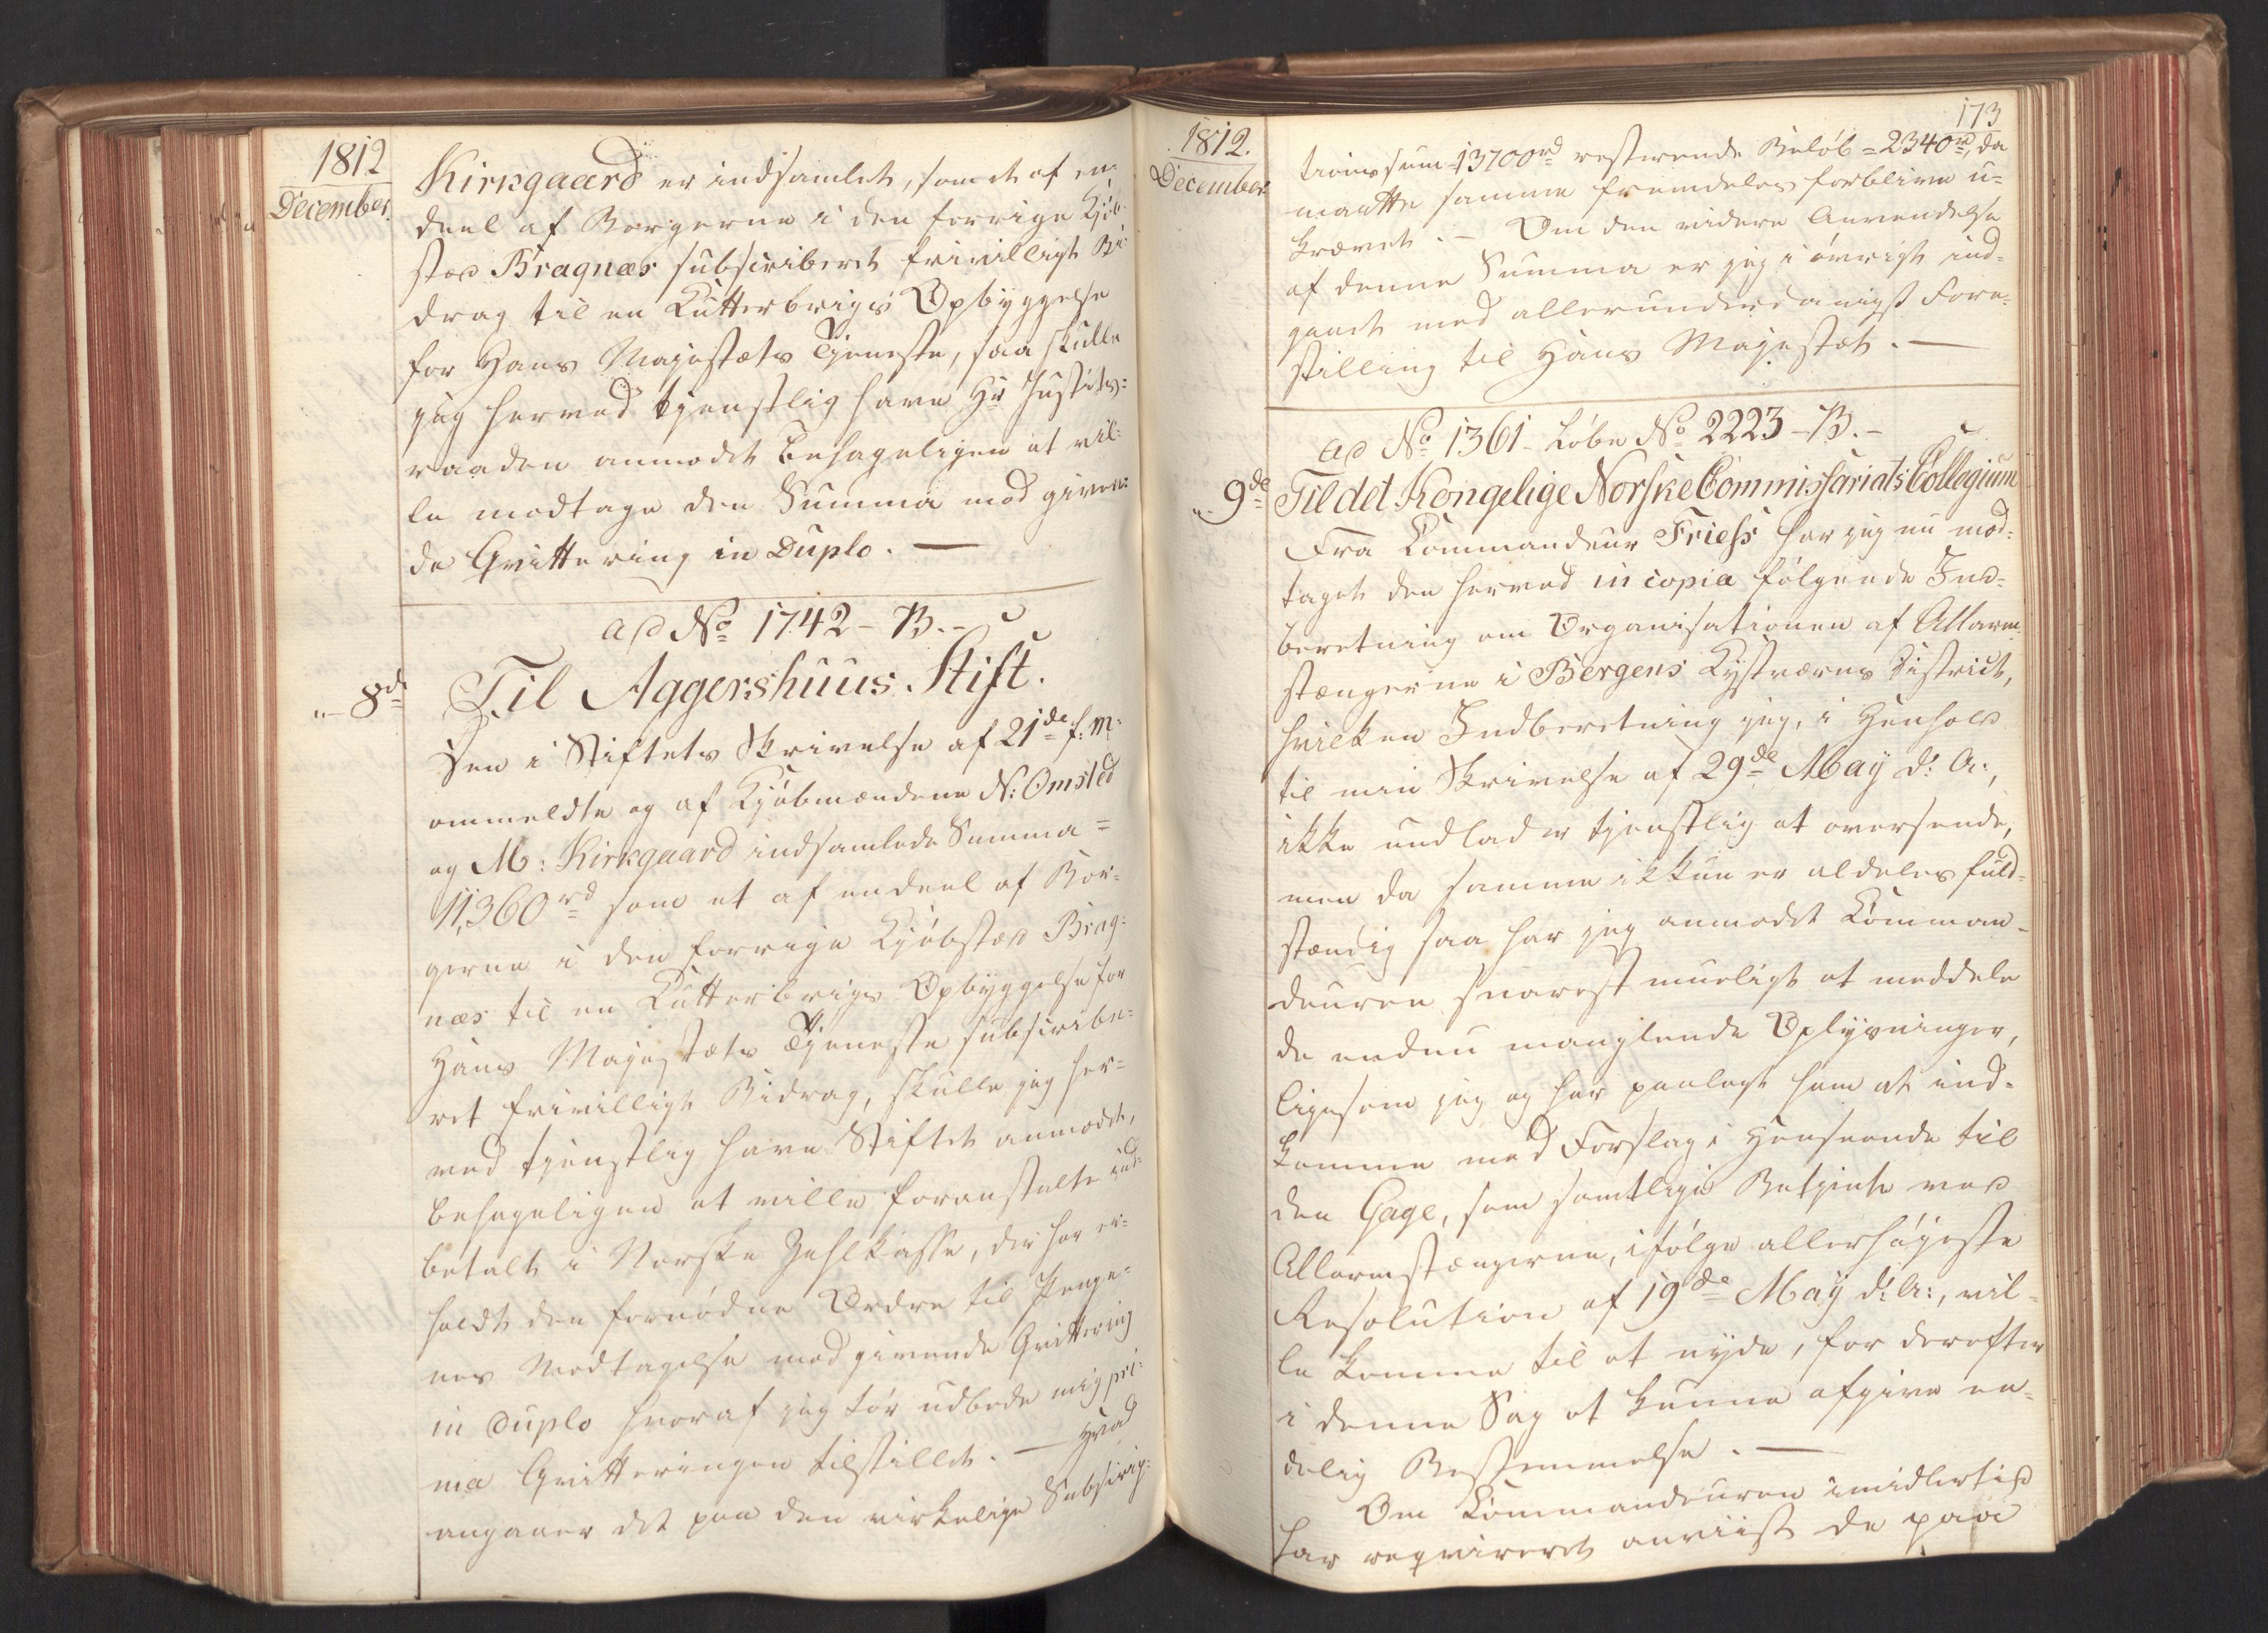 1812
December.
Kirkgaard er indsamlet, som et af en
deel af Borgerne i den forrige Kjøb-
stad Bragnæs subscriberet frivilligt Bi-
drag til en Kutterbrigs Opbyggelse
for Hans Majestæts Tjeneste, saa skulle
jeg herved tjenstlig have Hr Justits-
raaden anmodet behageligen at vil-
le modtage den Summa mod given-
de Qvittering in Duplo. —
ad No 1742 - B. -
"- 8de
Til Aggershuus Stift.
Den i Stiftets Skrivelse af 21de f: M:
ommeldte og af Kjøbmændene N: Omsted
og M: Kirkgaard indsamlede Summa =
11,360rd som et af endeel af Bor-
gerne i den forrige Kjøbstad Brag-
næs til en Kutterbrigs Opbyggelse for
Hans Majestæts Tjeneste subscribe-
ret frivilligt Bidrag, skulle jeg her-
ved tjenstlig have Stiftet anmodet,
behageligen at ville foranstalte ind-
betalt i Norske Zahlkasse, der har er-
holdt den fornødne Ordre til Penge-
nes Modtagelse mod givende Qvittering
in duplo hvoraf jeg tør udbede mig pri-
ma Qvitteringen tilstillet. — Hvad
angaaer det paa den virkelige Subscrip-
173
1812.
December
tions sum = 13700rd resterende Beløb = 2340rd, da
maatte samme fremdeles forblive u-
krævet. — Om den videre Anvendelse
af denne Summa er jeg i øvrigt ind-
gaaet med allerunderdanigst Fore-
stilling til Hans Majestæt. —
ad No 1361 - Løbe No 2223 - B. -
"- 9de
Til det Kongelige Norske Commissariats Collegium
Fra Commandeur Friess har jeg nu mod-
taget den herved in copia følgende Ind-
beretning om Organisationen af Allarm-
stængerne i Bergens Kystværns District,
hvilken Indberetning jeg, i Henhold
til min Skrivelse af 29de May d: A:,
ikke undlader tjenstlig at oversende,
men da samme ikkun er aldeles fuld-
stændig saa har jeg anmodet Comman-
deuren snarest mueligt at meddele
de endnu manglende Oplysninger,
ligesom jeg og har paalagt ham at ind-
komme med Forslag i Henseende til
den Gage, som samtlige Betjente ved
Allarmstængerne, ifølge allerhøjeste
Resolution af 19de May d: A:, vil-
le komme til at nyde, for derefter
i denne Sag at kunne afgive en-
delig Bestemmelse. —
Om Commandeuren imidlertid
har reqvireret anviist de paa